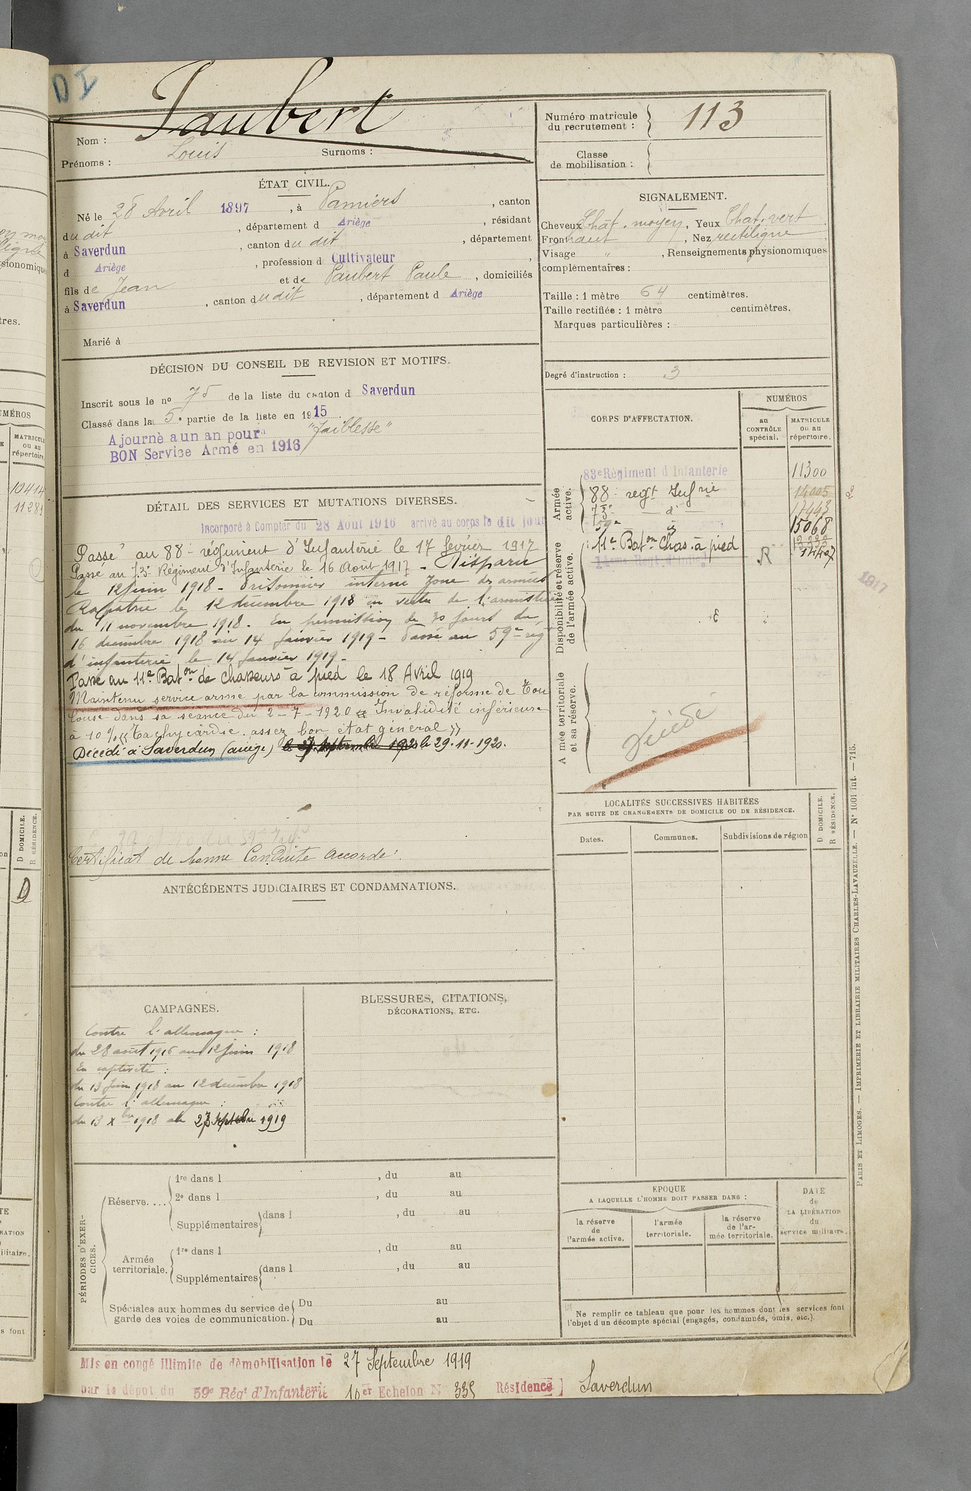 DI
Jaubert
Nom :
Prénoms : Louis Surnoms :
Numéro matricule
du recrutement : 113
Classe
de mobilisation :
ÉTAT CIVIL.
Né le 28 Avril 1897, à Pamiers, canton
dudit, département d Ariège, résidant
à Saverdun, canton dudit, département
d Ariège, profession d Cultivateur,
fils de Jean et de Paubert Paule, domiciliés
à Saverdun, canton dudit, département d Ariège
Marié à
SIGNALEMENT.
Cheveux Chat. moyen, Yeux Chat. vert
Front haut, Nez rectiligne
Visage ", Renseignements physionomiques
complémentaires :
Taille : 1 mètre 64 centimètres.
Taille rectifiée : 1 mètre centimètres.
Marques particulières :
Degré d'instruction : 3
DÉCISION DU CONSEIL DE REVISION ET MOTIFS.
Inscrit sous le nº 75 de la liste du canton d Saverdun
Classé dans la 5e partie de la liste en 1915
Ajourné a un an pour "faiblesse"
BON Service Armé en 1916
DÉTAIL DES SERVICES ET MUTATIONS DIVERSES.
Incorporé à Compter du 28 Aout 1916 arrivé au corps le dit jour
Passé au 88e régiment d'Infanterie le 17 février 1917
Passé au 73e Régiment d'Infanterie le 16 Août 1917 - Disparu
le 12 juin 1918 - Prisonnier interné zone des armées
Rapatrié le 12 décembre 1918 en vertu de l'armistice
du 11 novembre 1918. En permission de 30 jours du
16 décembre 1918 au 14 Janvier 1919 - Passé au 59e régt
d'infanterie le 14 Janvier 1919 -
Passé au 11e Baton de Chasseurs à pied le 18 Avril 1919
Maintenu service armé par la commission de réforme de Tou
louse dans sa séance du 2-7-1920 Invalidité inférieure
à 10% « Tachycardie. assez bon état général »
Décédé à Saverdun (ariège) le 27 septembre 1920 le 29-11-1920.
Certificat de bonne Conduite accordé.
CORPS D'AFFECTATION.
NUMÉROS
au
CONTRÔLE
spécial.
MATRICULE
ou au
répertoire.
Armée
active.
83e Régiment d Infanterie 11300
88e regt Infrie
73e — d°
11e Baton Chas. à pied 15068
R
Disponibilité et réserve
de l'armée active.
Armée territoriale
et sa réserve.
Décédé
1917
LOCALITÉS SUCCESSIVES HABITÉES
PAR SUITE DE CHANGEMENTS DE DOMICILE OU DE RÉSIDENCE.
Dates.
Communes.
Subdivisions de région
D DOMICILE.
R RÉSIDENCE.
ANTÉCÉDENTS JUDICIAIRES ET CONDAMNATIONS.
CAMPAGNES.
Contre l'allemagne :
du 28 août 1916 au 12 juin 1918
En captivité :
du 13 Juin 1918 au 12 décembre 1918
Contre l'allemagne :
du 13 Xbre 1918 au 27 Septembre 1919
BLESSURES, CITATIONS,
DÉCORATIONS, ETC.
PÉRIODES D'EXER-
CICES.
Réserve....
1re dans l , du au
2e dans l , du au
Supplémentaires dans l , du au
Armée
territoriale.
1re dans l , du au
Supplémentaires dans l , du au
Spéciales aux hommes du service de
garde des voies de communication.
Du au
Du au
EPOQUE
A LAQUELLE L'HOMME DOIT PASSER DANS :
la réserve
de
l'armée active.
l'armée
territoriale.
la réserve
de l'ar-
mée territoriale.
DATE
de
LA LIBÉRATION
du
service militaire.
Ne remplir ce tableau que pour les hommes dont les services font
l'objet d'un décompte spécial (engagés, condamnés, omis, etc.).
Mis en congé illimité de démobilisation le 27 Septembre 1919
par le dépot du 59e Régt d'Infanterie 10er Echelon N° 335 Résidence] Saverdun
PARIS ET LIMOGES. — IMPRIMERIE ET LIBRAIRIE MILITAIRES CHARLES-LAVAUZELLE. — Nº 1001 int. — 715.